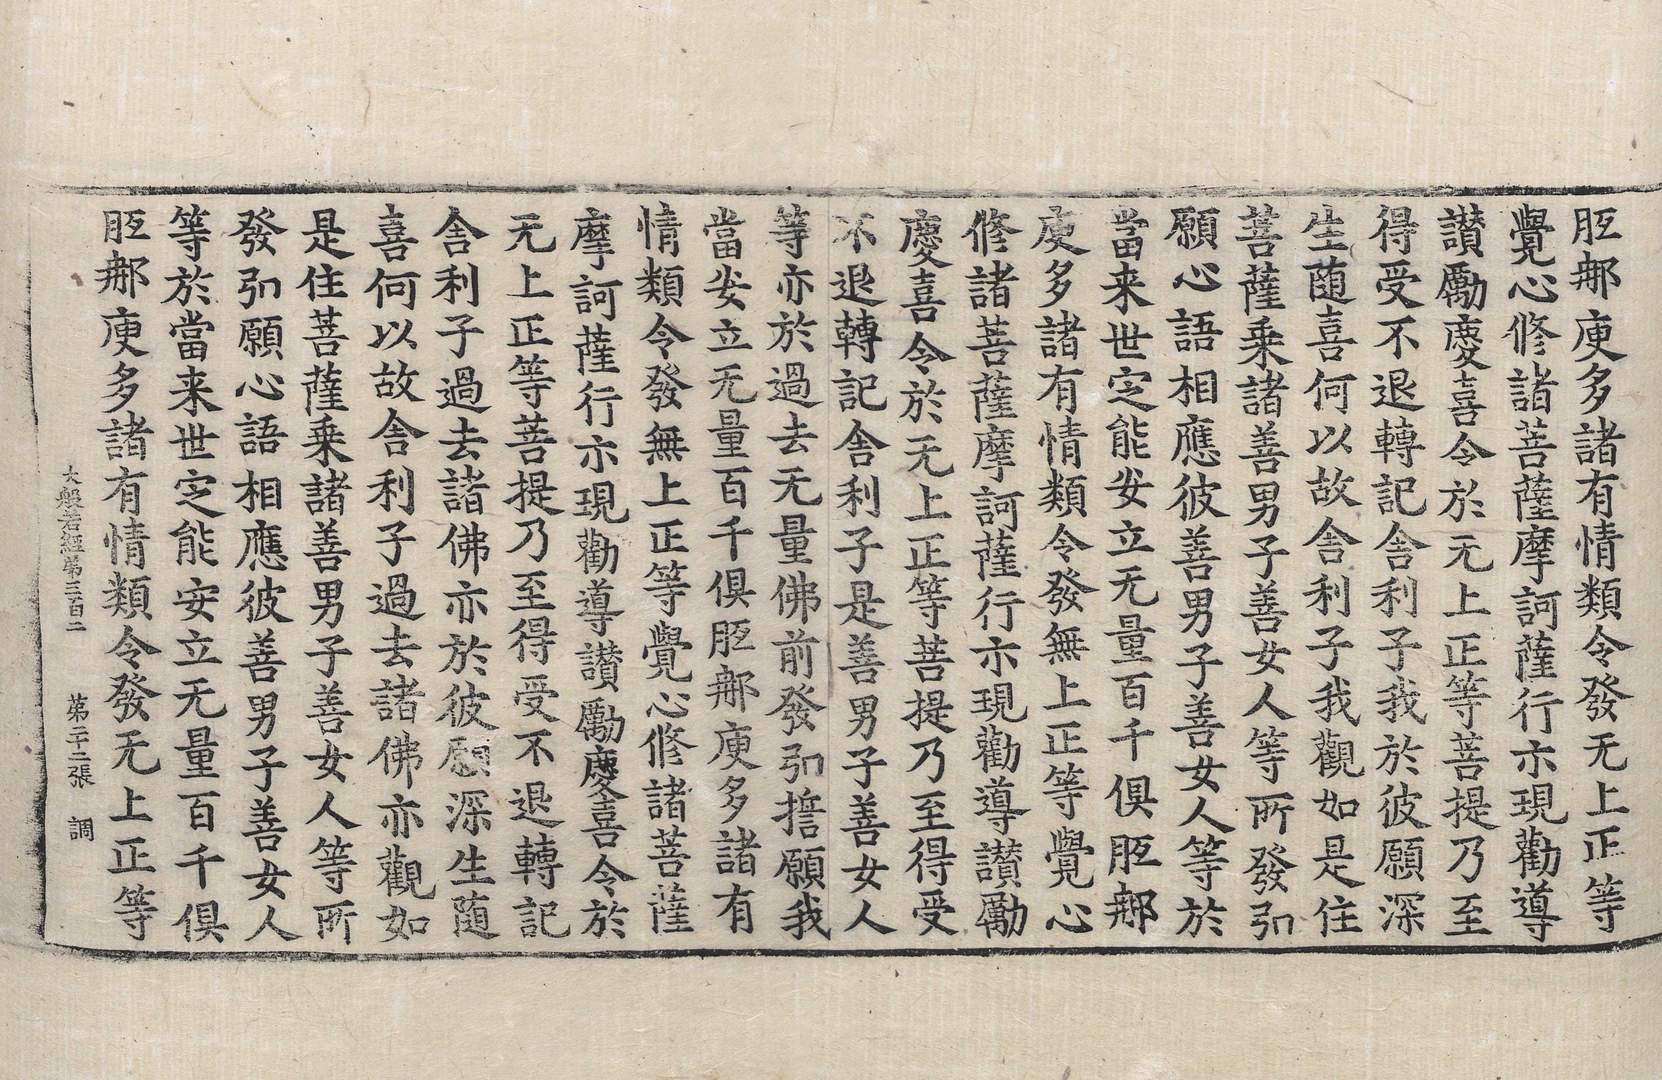 胝𨚗庾多諸有情類令發无上正等
覺心修諸菩薩摩訶薩行亦現勸導
讃勵慶喜令於无上正等菩提乃至
得受不退轉記舍利子我於彼願深
生随喜何以故舍利子我觀如是住
菩薩乗諸善男子善女人等所發弘
願心語相應彼善男子善女人等於
當来世定能安立无量百千俱胝𨚗
庾多諸有情類令發無上正等覺心
修諸菩薩摩訶薩行亦現勸導讃勵
慶喜令於无上正等菩提乃至得受
不退轉記舍利子是善男子善女人
等亦於過去无量佛前發弘誓願我
當安立无量百千俱胝𨚗庾多諸有
情類令發無上正等覺心修諸菩薩
摩訶薩行亦現勸導讃勵慶喜令於
无上正等菩提乃至得受不退轉記
舍利子過去諸佛亦於彼願深生随
喜何以故舍利子過去諸佛亦觀如
是住菩薩乗諸善男子善女人等所
發弘願心語相應彼善男子善女人
等於當来世定能安立无量百千俱
胝𨚗庾多諸有情類令發无上正等
大般若經第三百二 第二十二張 調